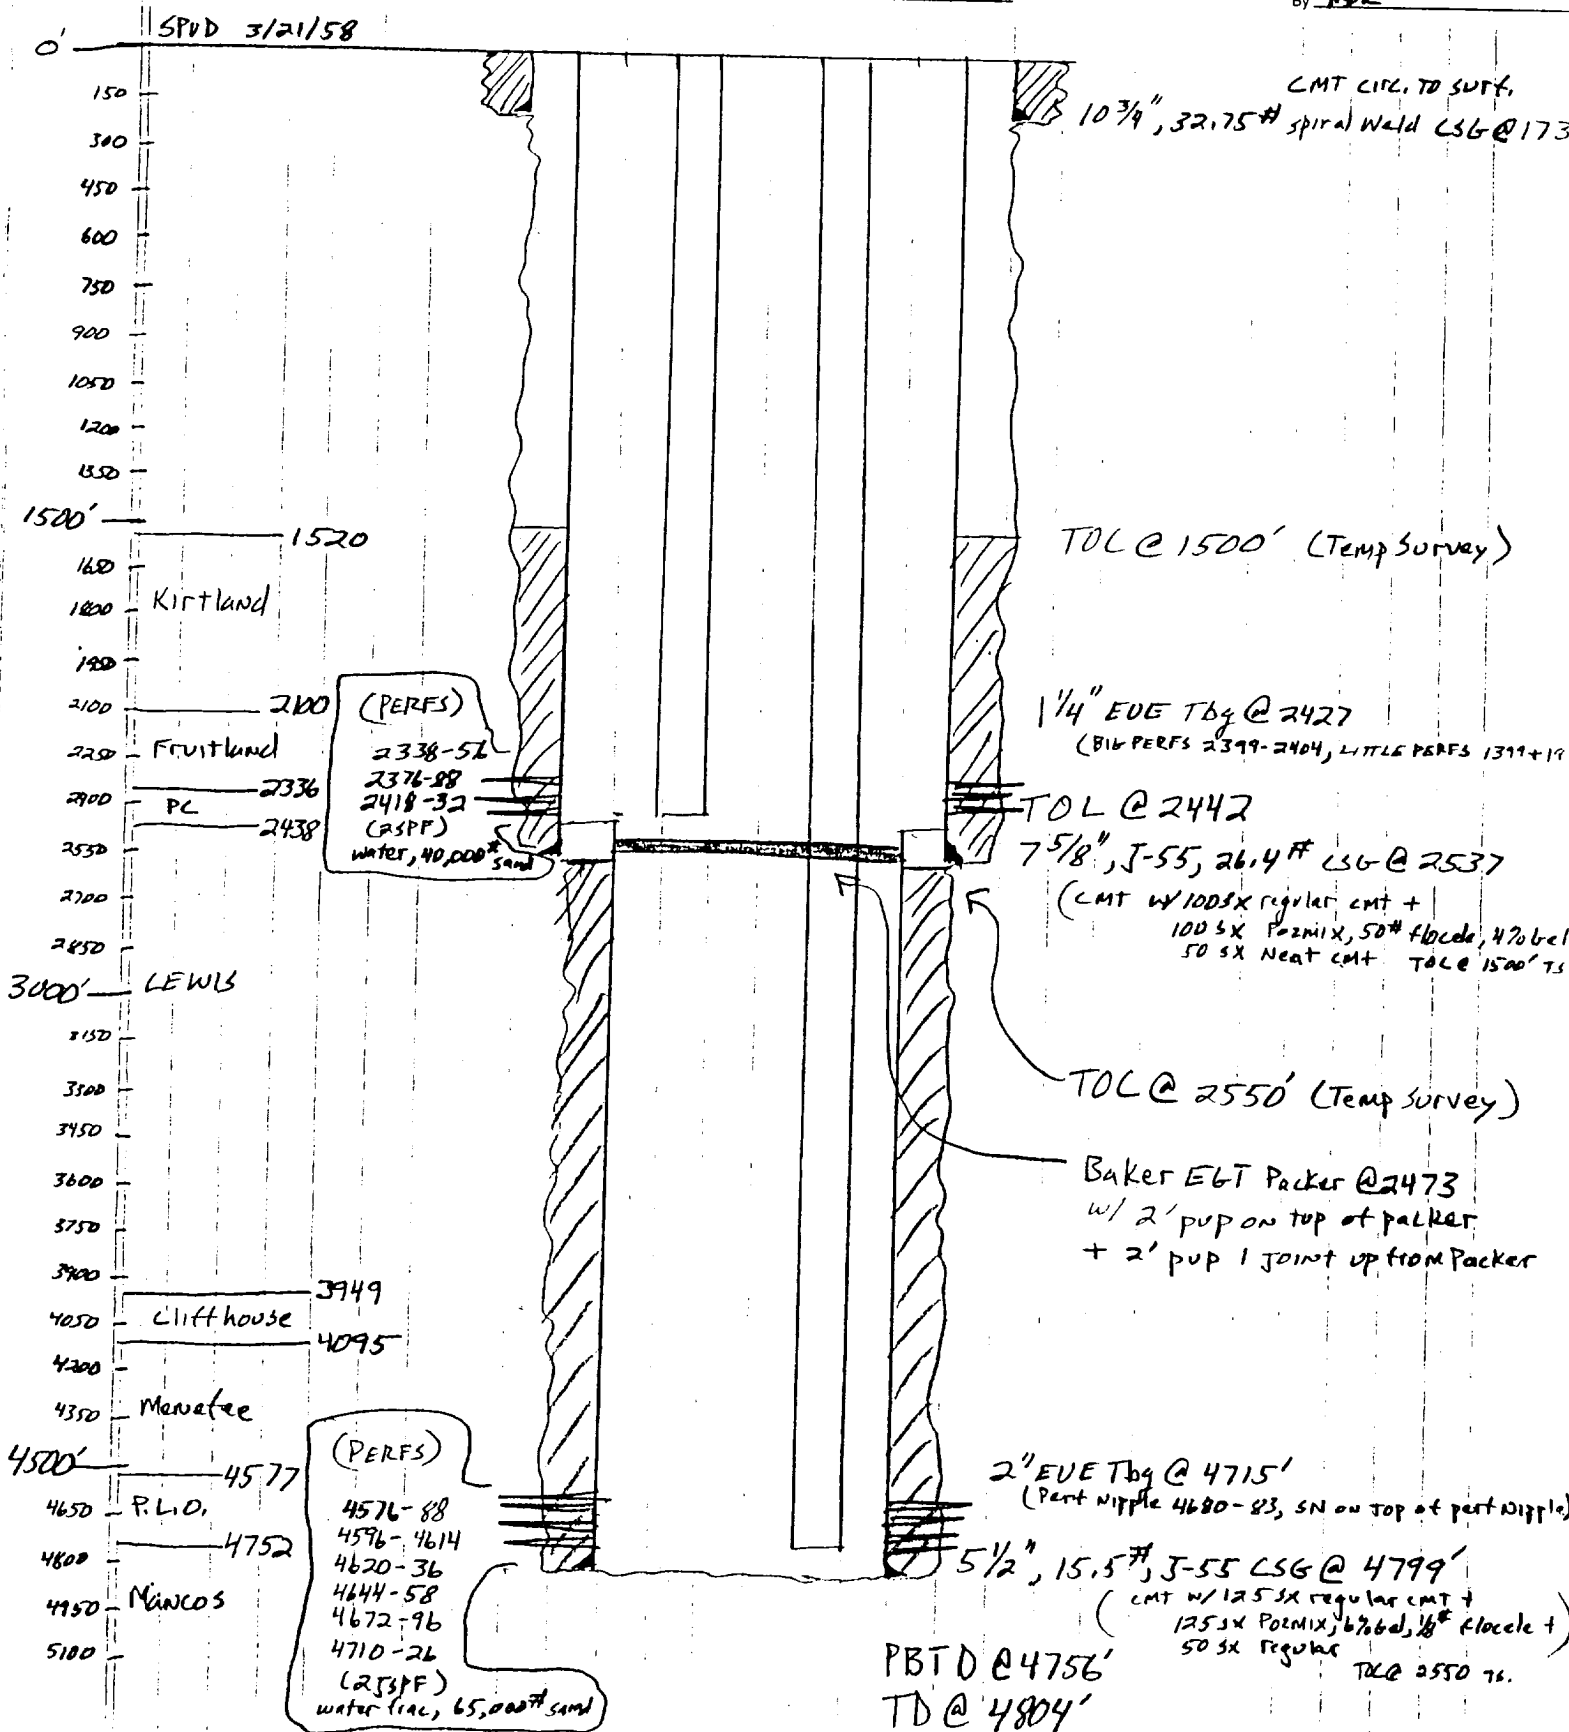 By
SPUD 3/21/58
0'
150
300
450
600
750
900
1050
1200
1350
1500'
1650
1800
1950
2100
2250
2400
2550
2700
2850
3000'
3150
3300
3450
3600
3750
3900
4050
4200
4350
4500'
4650
4800
4950
5100
1520
Kirtland
2100
Fruitland
2336
PC
2438
LEWIS
3949
Cliffhouse
4095
Menefee
4577
P.L.O.
4752
Mancos
(PERFS)
2338-56
2376-88
2418-32
(2SPF)
water, 40,000# sand
(PERFS)
4576-88
4596-4614
4620-36
4644-58
4672-96
4710-26
(2SPF)
water frac, 65,000# sand
CMT circ. TO surf.
10 3/4", 32.75# spiral Weld CSG @ 173
TOC @ 1500' (Temp Survey)
1 1/4" EUE Tbg @ 2427
(BIG PERFS 2399-2404, LITTLE PERFS 1399+19
TOL @ 2442
7 5/8", J-55, 26.4# CSG @ 2537
(CMT w/ 100 sx regular cmt +
100 sx Pozmix, 50# flocele, 4% Gel
50 sx Neat cmt TOC @ 1500' TS
TOC @ 2550' (Temp Survey)
Baker EGT Packer @ 2473
w/ 2' pup on top of packer
+ 2' pup 1 joint up from Packer
2" EUE Tbg @ 4715'
(Perf Nipple 4680-83, SN on top of perf Nipple)
5 1/2", 15.5#, J-55 CSG @ 4799'
(cmt w/ 125 sx regular cmt +
125 sx Pozmix, 6% Gel, 1/8# flocele +
50 sx regular)
TOC @ 2550 TS.
PBTD @ 4756'
TD @ 4804'